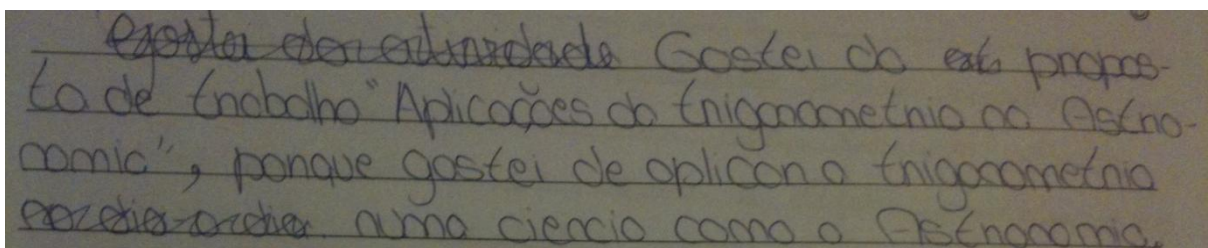 Gostei da propos-
ta de trabalho "Aplicações da trigonometria na Astro-
nomia", porque gostei de aplicar a trigonometria
numa ciencia como a Astronomia.